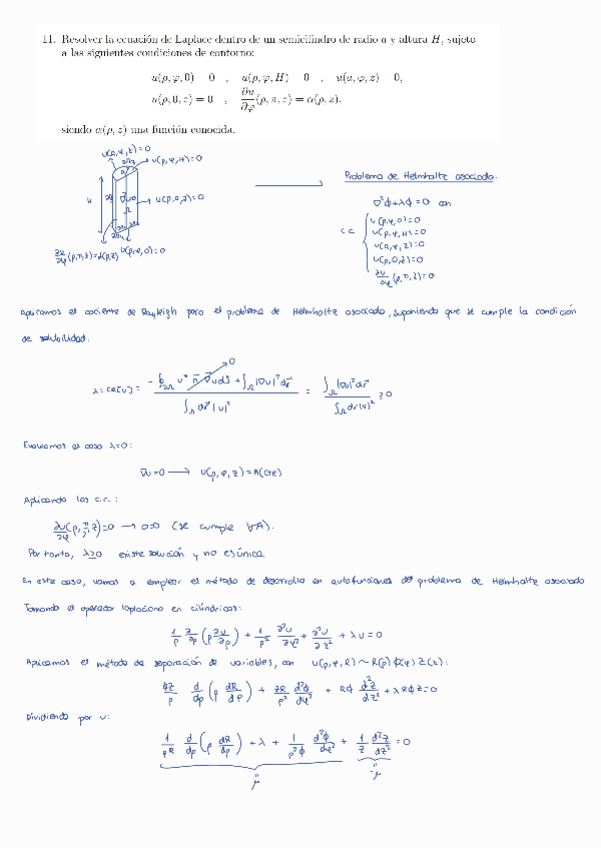 11. Resolver la ecuación de Laplace dentro de un semicilindro de radio a y altura H, sujeto
a las siguientes condiciones de contorno:
u(ρ, φ, 0) = 0 , u(ρ, φ, H) = 0 , u(a, φ, z) = 0,
u(ρ, 0, z) = 0 , ∂u/∂φ (ρ, π, z) = α(ρ, z).
siendo α(ρ, z) una función conocida.
u(a,φ,z)=0
u(ρ,φ,H)=0
u(ρ,0,z)=0
∂u/∂φ (ρ,π,z)=α(ρ,z) u(ρ,φ,0)=0
Problema de Helmholtz asociado.
∇²ϕ+λϕ=0 con
c.c.
u(ρ,φ,0)=0
u(ρ,φ,H)=0
u(a,φ,z)=0
u(ρ,0,z)=0
∂u/∂φ (ρ,π,z)=0
Aplicamos el cociente de Rayleigh para el problema de Helmholtz asociado, suponiendo que se cumple la condición
de solubilidad:
Evaluamos el caso λ=0:
∇u=0 → u(ρ,φ,z)=A(cte)
Aplicando las c.c.:
∂u/∂φ (ρ,π,z)=0 → 0=0 (se cumple ∀A).
Por tanto, λ≥0 existe solución y no es única
En este caso, vamos a emplear el método de desarrollo en autofunciones del problema de Helmholtz asociado
Tomando el operador laplaciano en cilíndricas:
1/ρ ∂/∂ρ (ρ ∂u/∂ρ) + 1/ρ² ∂²u/∂φ² + ∂²u/∂z² + λu=0
Aplicamos el método de separación de variables, con u(ρ,φ,z) ~ R(ρ)ϕ(φ)Z(z):
ϕZ/ρ d/dρ (ρ dR/dρ) + ZR/ρ² d²ϕ/dφ² + Rϕ d²Z/dz² + λRϕZ=0
Dividiendo por u:
1/ρR d/dρ (ρ dR/dρ) + λ + 1/ρ²ϕ d²ϕ/dφ² + 1/Z d²Z/dz² = 0
μ -μ